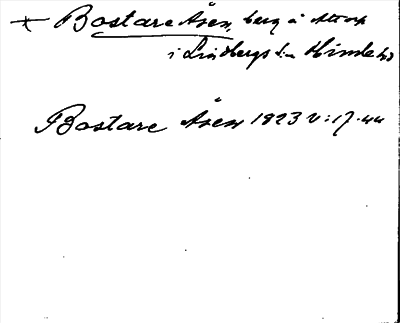 × Bostare Åsen, berg å Attorp
i Lindbergs sn Himle hd
Bostare Åsen 1823 v: 17.44